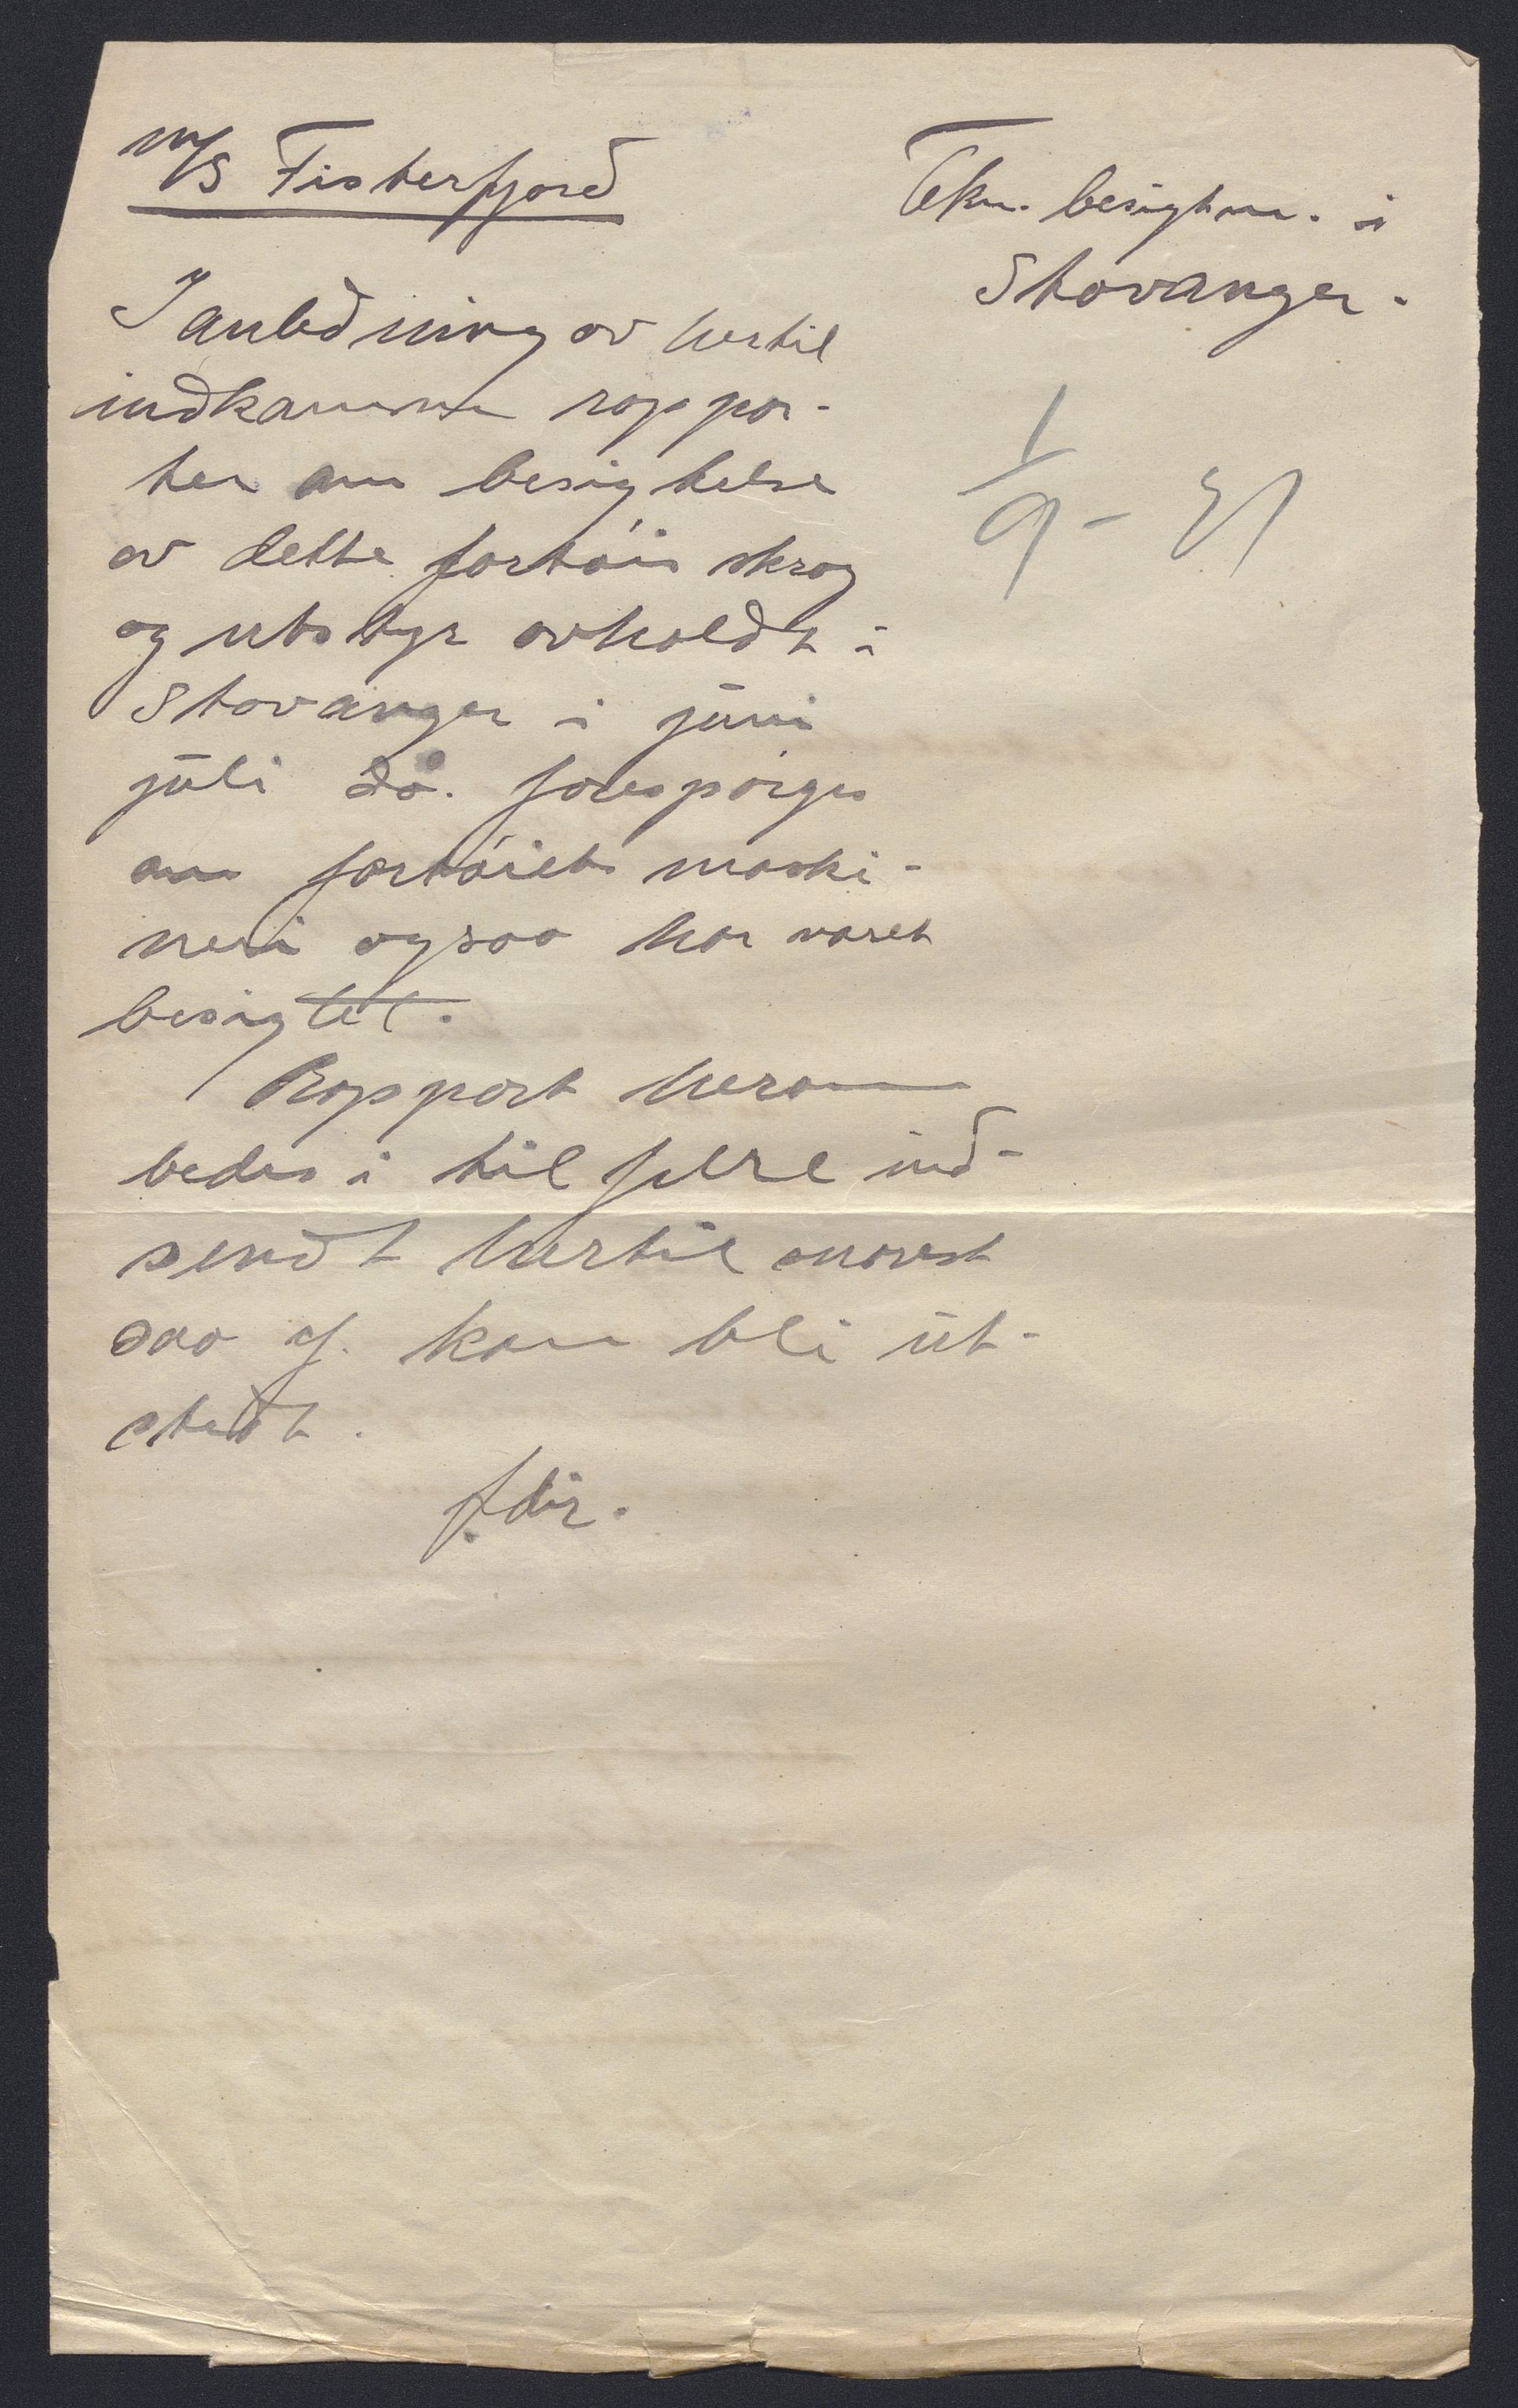 M/S Fisterfjord
Tekn. besigtm. i
Stavanger.
1/9 - 21
I anledning av hertil
indkomne rappor-
ter om besigtelse
av dette fartøis skrog
og utstyr avholdt i
Stavanger i juni
juli då. forespørges
om fartøiets maski-
neri ogsaa har været
besigtet.
Rapport herom
bedes i tilfelle ind-
sendt hertil snarest
saa cf. kan bli ut-
stedt.
f. dir.